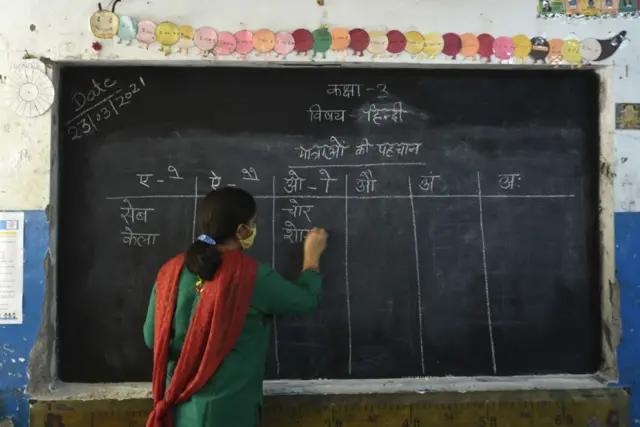 Date
23/03/2021
कक्षा - 3
विषय - हिन्दी
मात्राओं की पहचान
ए - े ऐ - ै ओ - ो औ अं अः
सेब चोर
केला